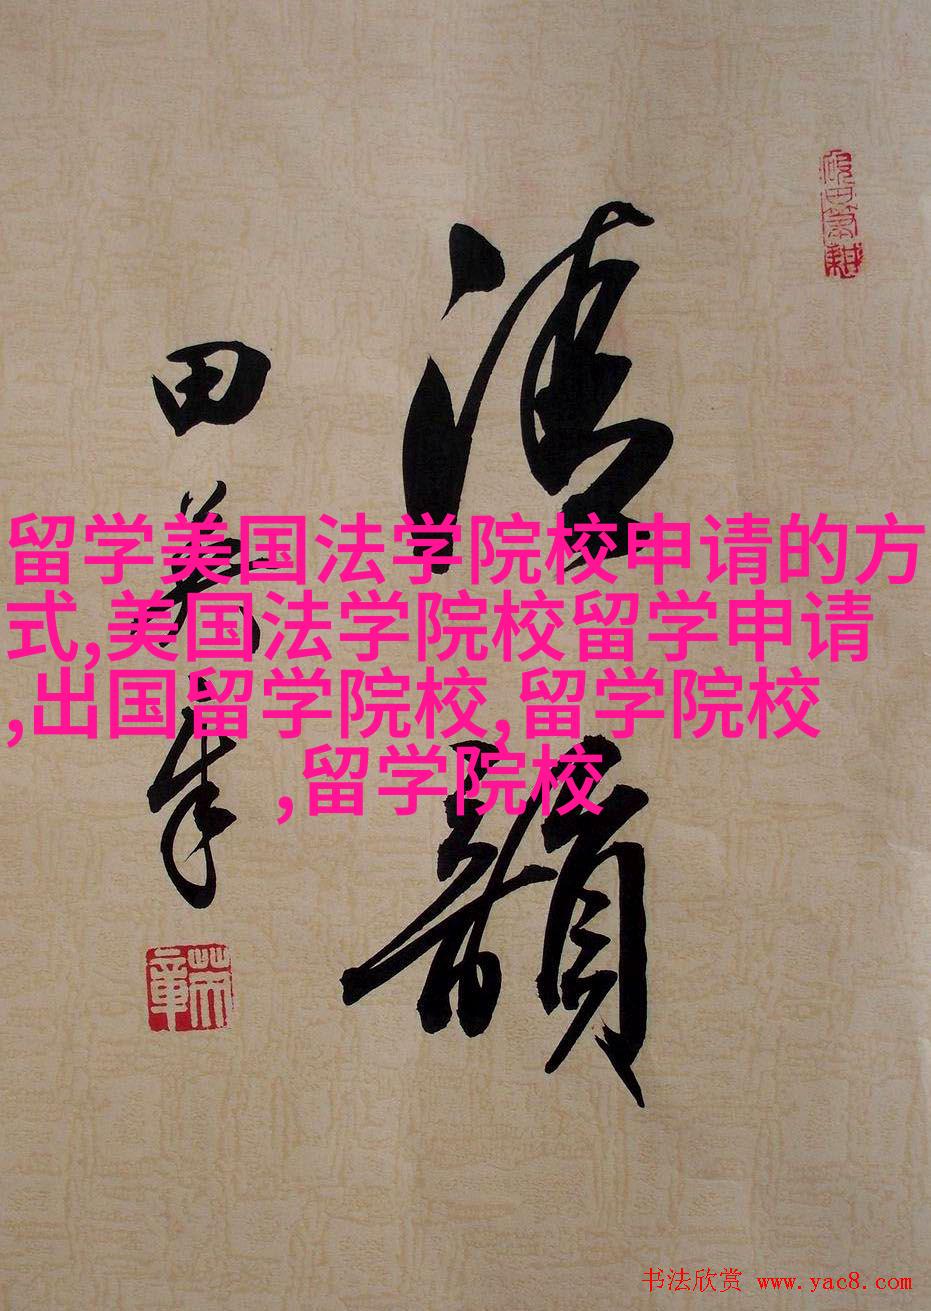 清
韻
田英章
留学美国法学院校申请的方
式,美国法学院校留学申请
,出国留学院校,留学院校
,留学院校
书法欣赏 www.yac8.com